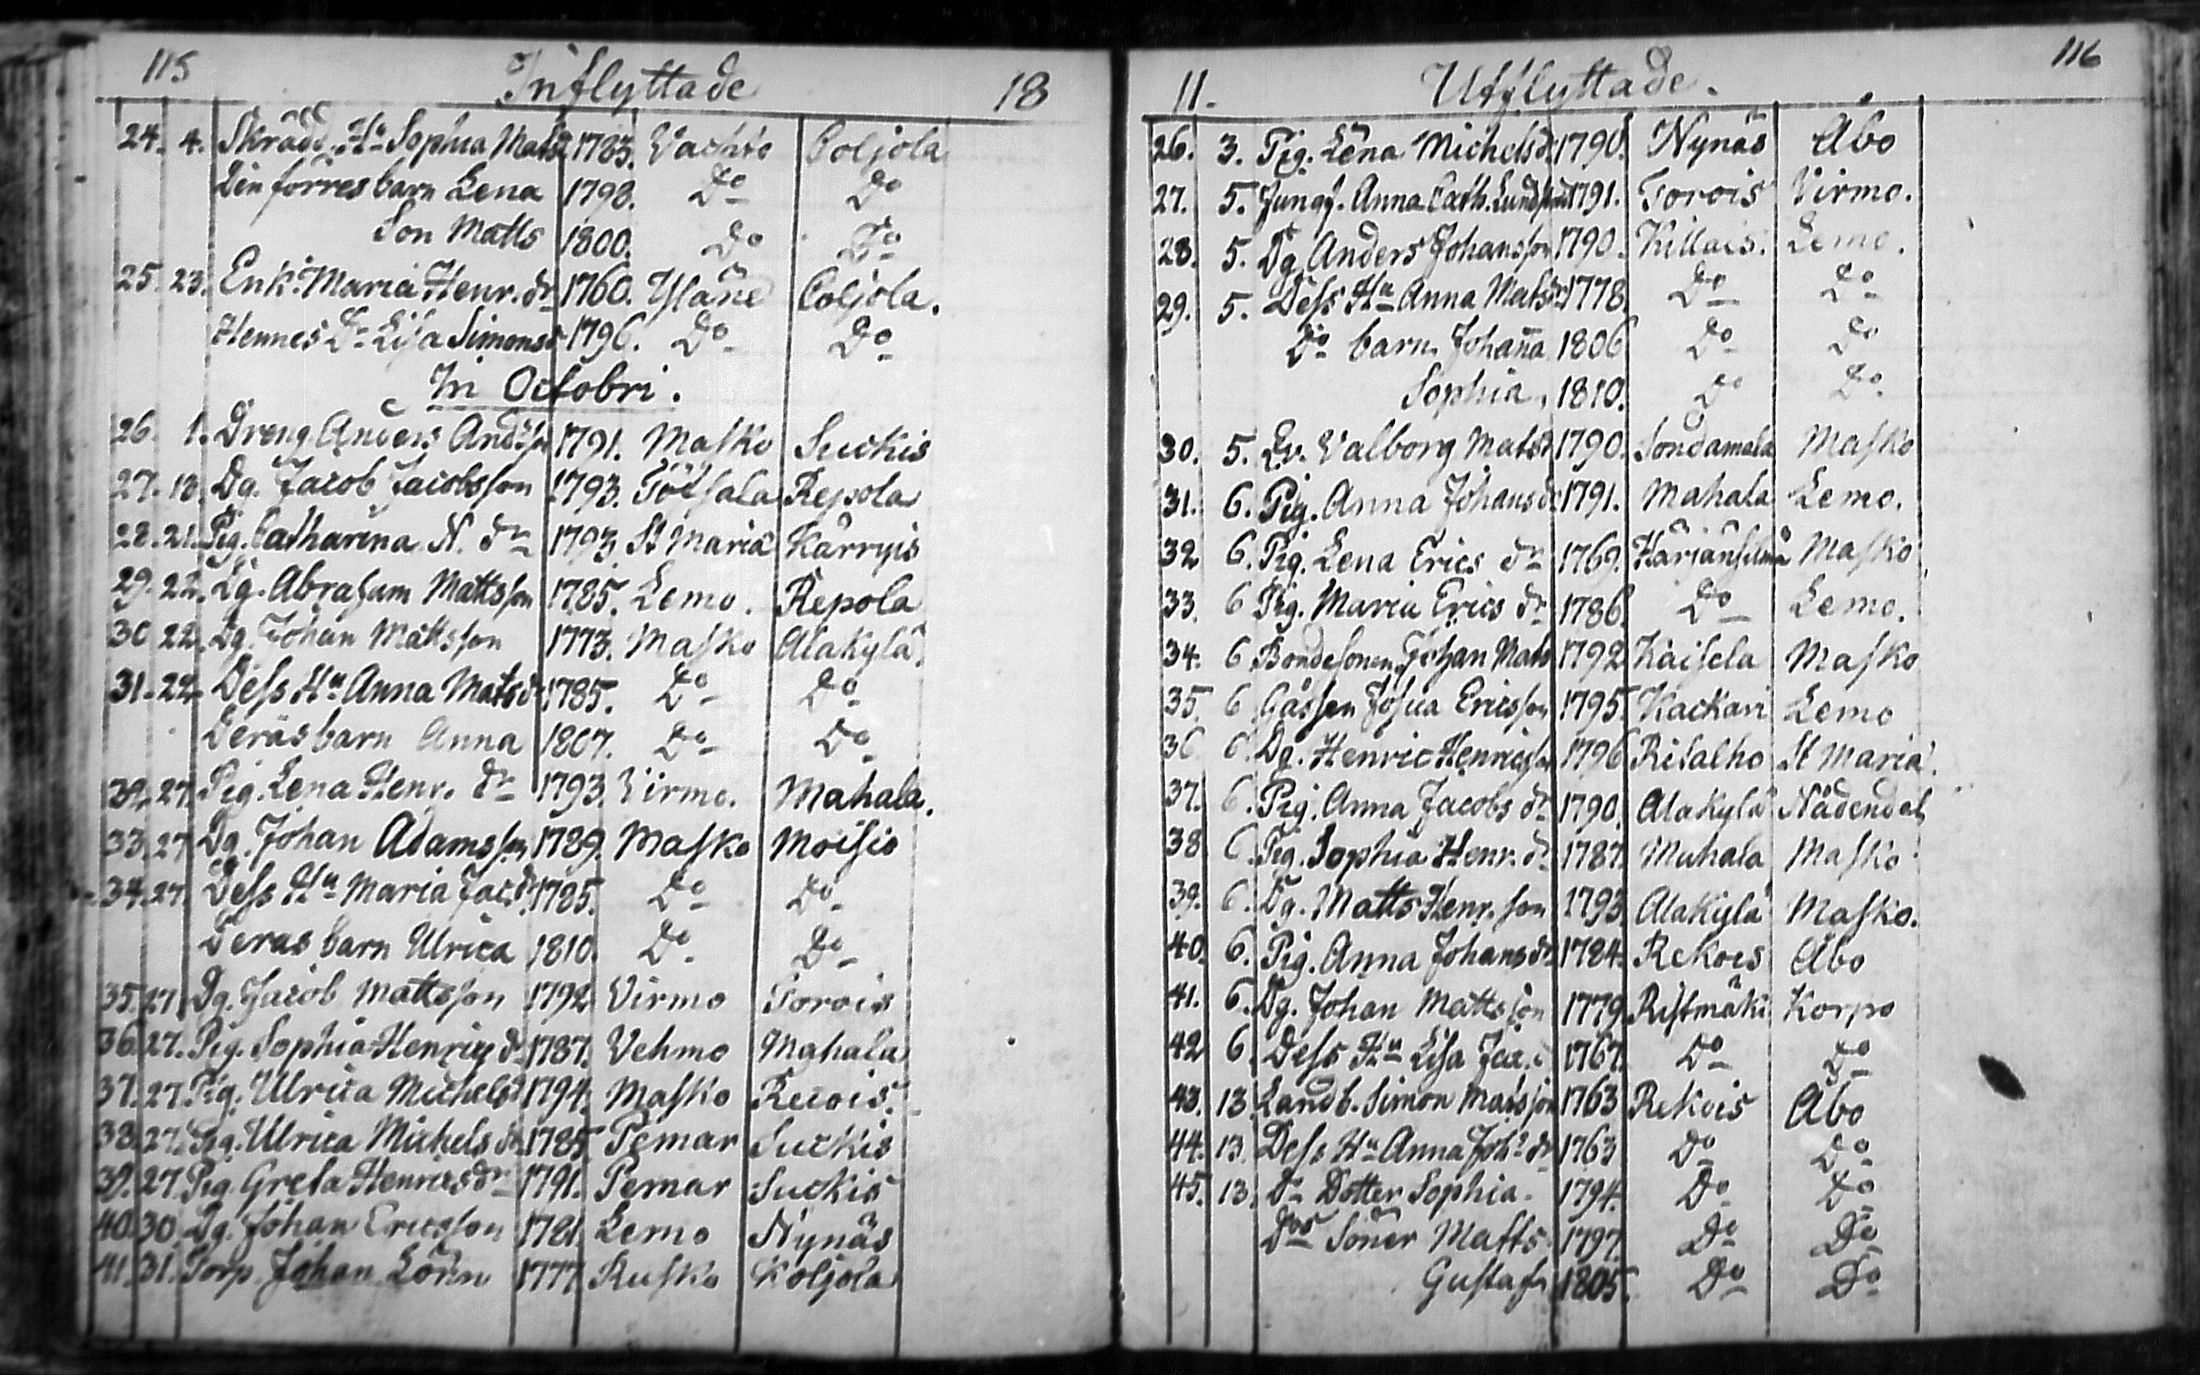 115 Inflyttade 18
24. 4. Skrädd. Hu Sophia Matsdr 1783. Vachto Coljola
Den förres barn Lena 1798. Do Do
Son Matts 1800. Do Do
25. 23. Enk. Maria Henr. dr 1760. Yläne Coljola.
Hennes Dr Lisa Simonsdr 1796. Do Do
In Octobri.
26. 1. Dreng Anders And:son 1791. Masko Suckis
27. 13. Dg. Jacob Jacobsson 1793. Töfsala Repola
28. 21. Pig. Catharina N. dr 1793. St Maria Kärryis
29. 22. Dg. Abraham Mattsson 1785. Lemo. Repola
30 22. Dg. Johan Mattsson 1773. Masko Alakylä.
31. 22. Dess Hu Anna Mats dr 1785. Do Do
Deras barn Anna 1807. Do Do
32. 27. Pig. Lena Henr. dr 1793. Virmo. Mahala.
33. 27. Dg. Johan Adamsson 1789. Masko Moisio
34. 27. Dess Hu Maria Jac.dr 1785. Do Do
Deras barn Ulrica 1810. Do Do
35. 27. Dg. Jacob Mattsson 1792 Virmo Torois
36. 27. Pig. Sophia Henrics dr 1787. Vehmo Mahala
37. 27. Pig. Ulrica Michelsdr 1794. Masko Recois.
38. 27. Pig. Ulrica Michels dr 1785. Pemar Suckis
39. 27 Pig. Greta Henricsdr 1791. Pemar Suckis
40. 30. Dg. Johan Ericsson 1781. Lemo Nynäs
41. 31. Torp. Johan Lönn 1777. Rusko Koljola
11. Utflyttade. 116
26. 3. Pig. Lena Michelsdr 1790. Nynäs Åbo
27. 5. Jungf. Anna Cath. 1791. Torois Virmo.
28. 5. Dg Anders Johansson 1790. Killais. Lemo.
29. 5. Dess Hu Anna Matsdr 1778. Do Do
Do barn Johanna 1806 Do Do
Sophia, 1810. Do Do
30. 5. Valborg Matsdr 1790. Sondamala Masko
31. 6. Pig. Anna Johans dr 1791. Mahala Lemo.
32 6. Pig. Lena Erics dr 1769. Masko
33. 6 Pig. Maria Erics dr 1786. Do Lemo.
34. 6 Bondesonen Johan Mats 1792 Kaisela Masko
35. 6 Gåssen Josua Ericsson 1795. Kackari Lemo
36 6. Dg. Henric Henricsson 1796 Risalho St Maria.
37. 6. Pig. Anna Jacobs dr 1790. Alakylä Nådendal
38 6. Pig. Sophia Henr. dr 1787. Mahala Masko
39. 6. Dg. Matts Henr. son 1793 Alakylä Masko.
40. 6. Pig. Anna Johansdr 1784. Rekois Åbo
41. 6. Dg. Johan Mattsson 1779 Ristmäki Korpo
42 6. Dess Hu Lisa Jac. dr 1767. Do Do
43. 13. Landb. Simon Matsson 1763 Rekois Åbo
44. 13. Dess Hu Anna Joh: dr 1763 Do Do
45. 13. Ds Dotter Sophia. 1794. Do Do
Ds Söner Matts. 1797. Do Do
Gustaf 1805. Do Do